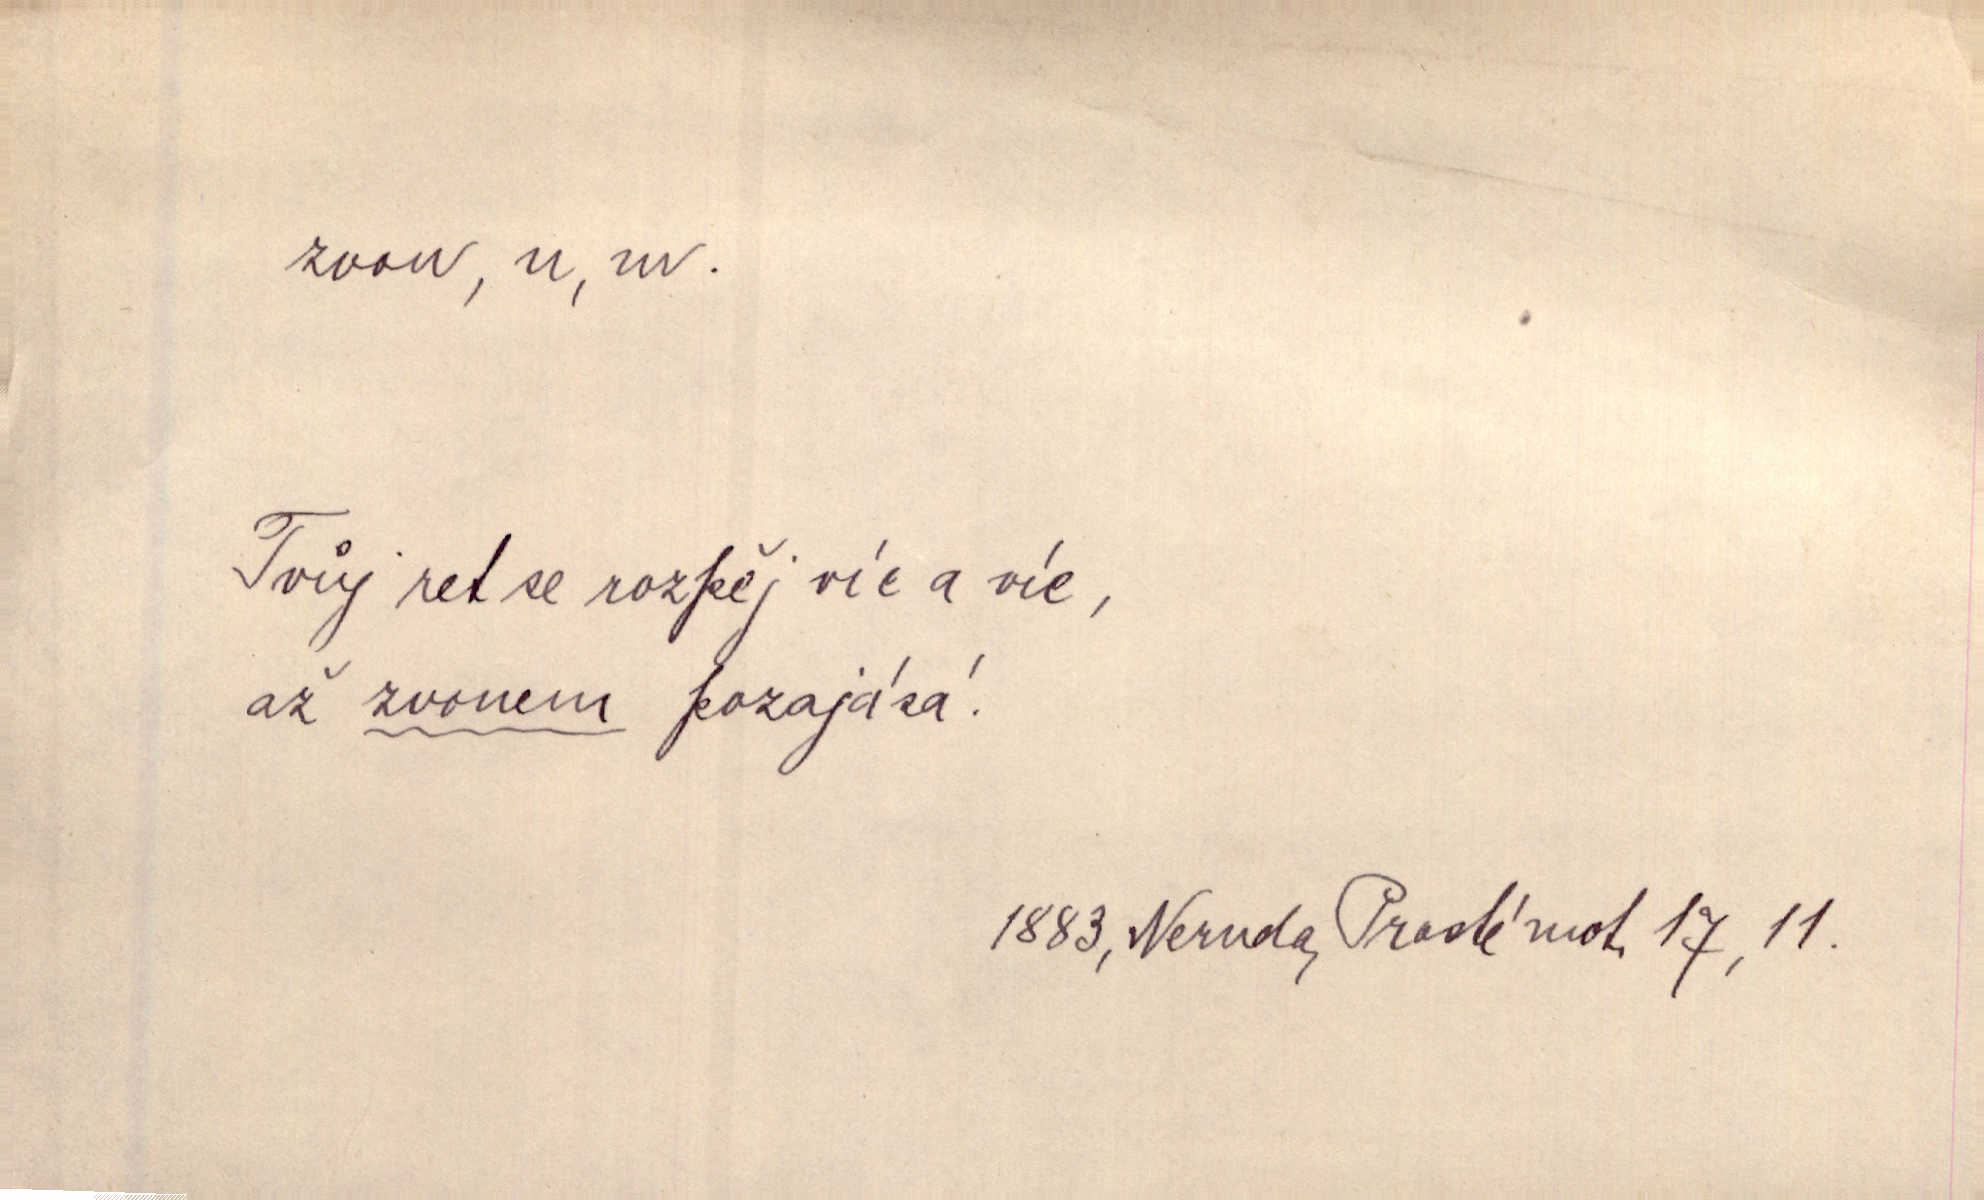 zvon, u, m.
Tvůj ret se rozpěj víc a víc,
až zvonem pozajásá.
1883, Neruda, Prosté mot. 17, 11.